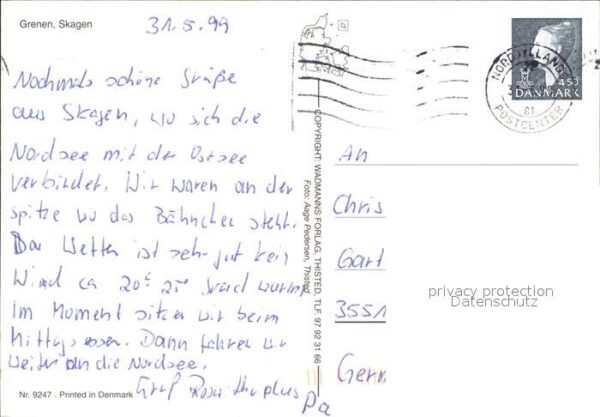 Grenen, Skagen
31.5.99
Nochmals schöne Grüße
aus Skagen, wo sich die
Nordsee mit der Ostsee
verbindet. Wir waren an der
spitze wo das Bähnchen steht.
Das Wetter ist sehr gut kein
Wind ca 20° 25° Grad warm
Im Moment sitzen wir beim
Mittagessen. Dann fahren wir
weiter an die Nordsee.
Gruß
Nr. 9247 . Printed in Denmark
COPYRIGHT: WADMANNS FORLAG, THISTED, TLF. 97 92 31 66
Foto: Aage Pedersen, Thisted
NORDJYLLANDS
POSTCENTER
81
450
DANMARK
An
Chris
Gart
3551
Germ
privacy protection
Datenschutz